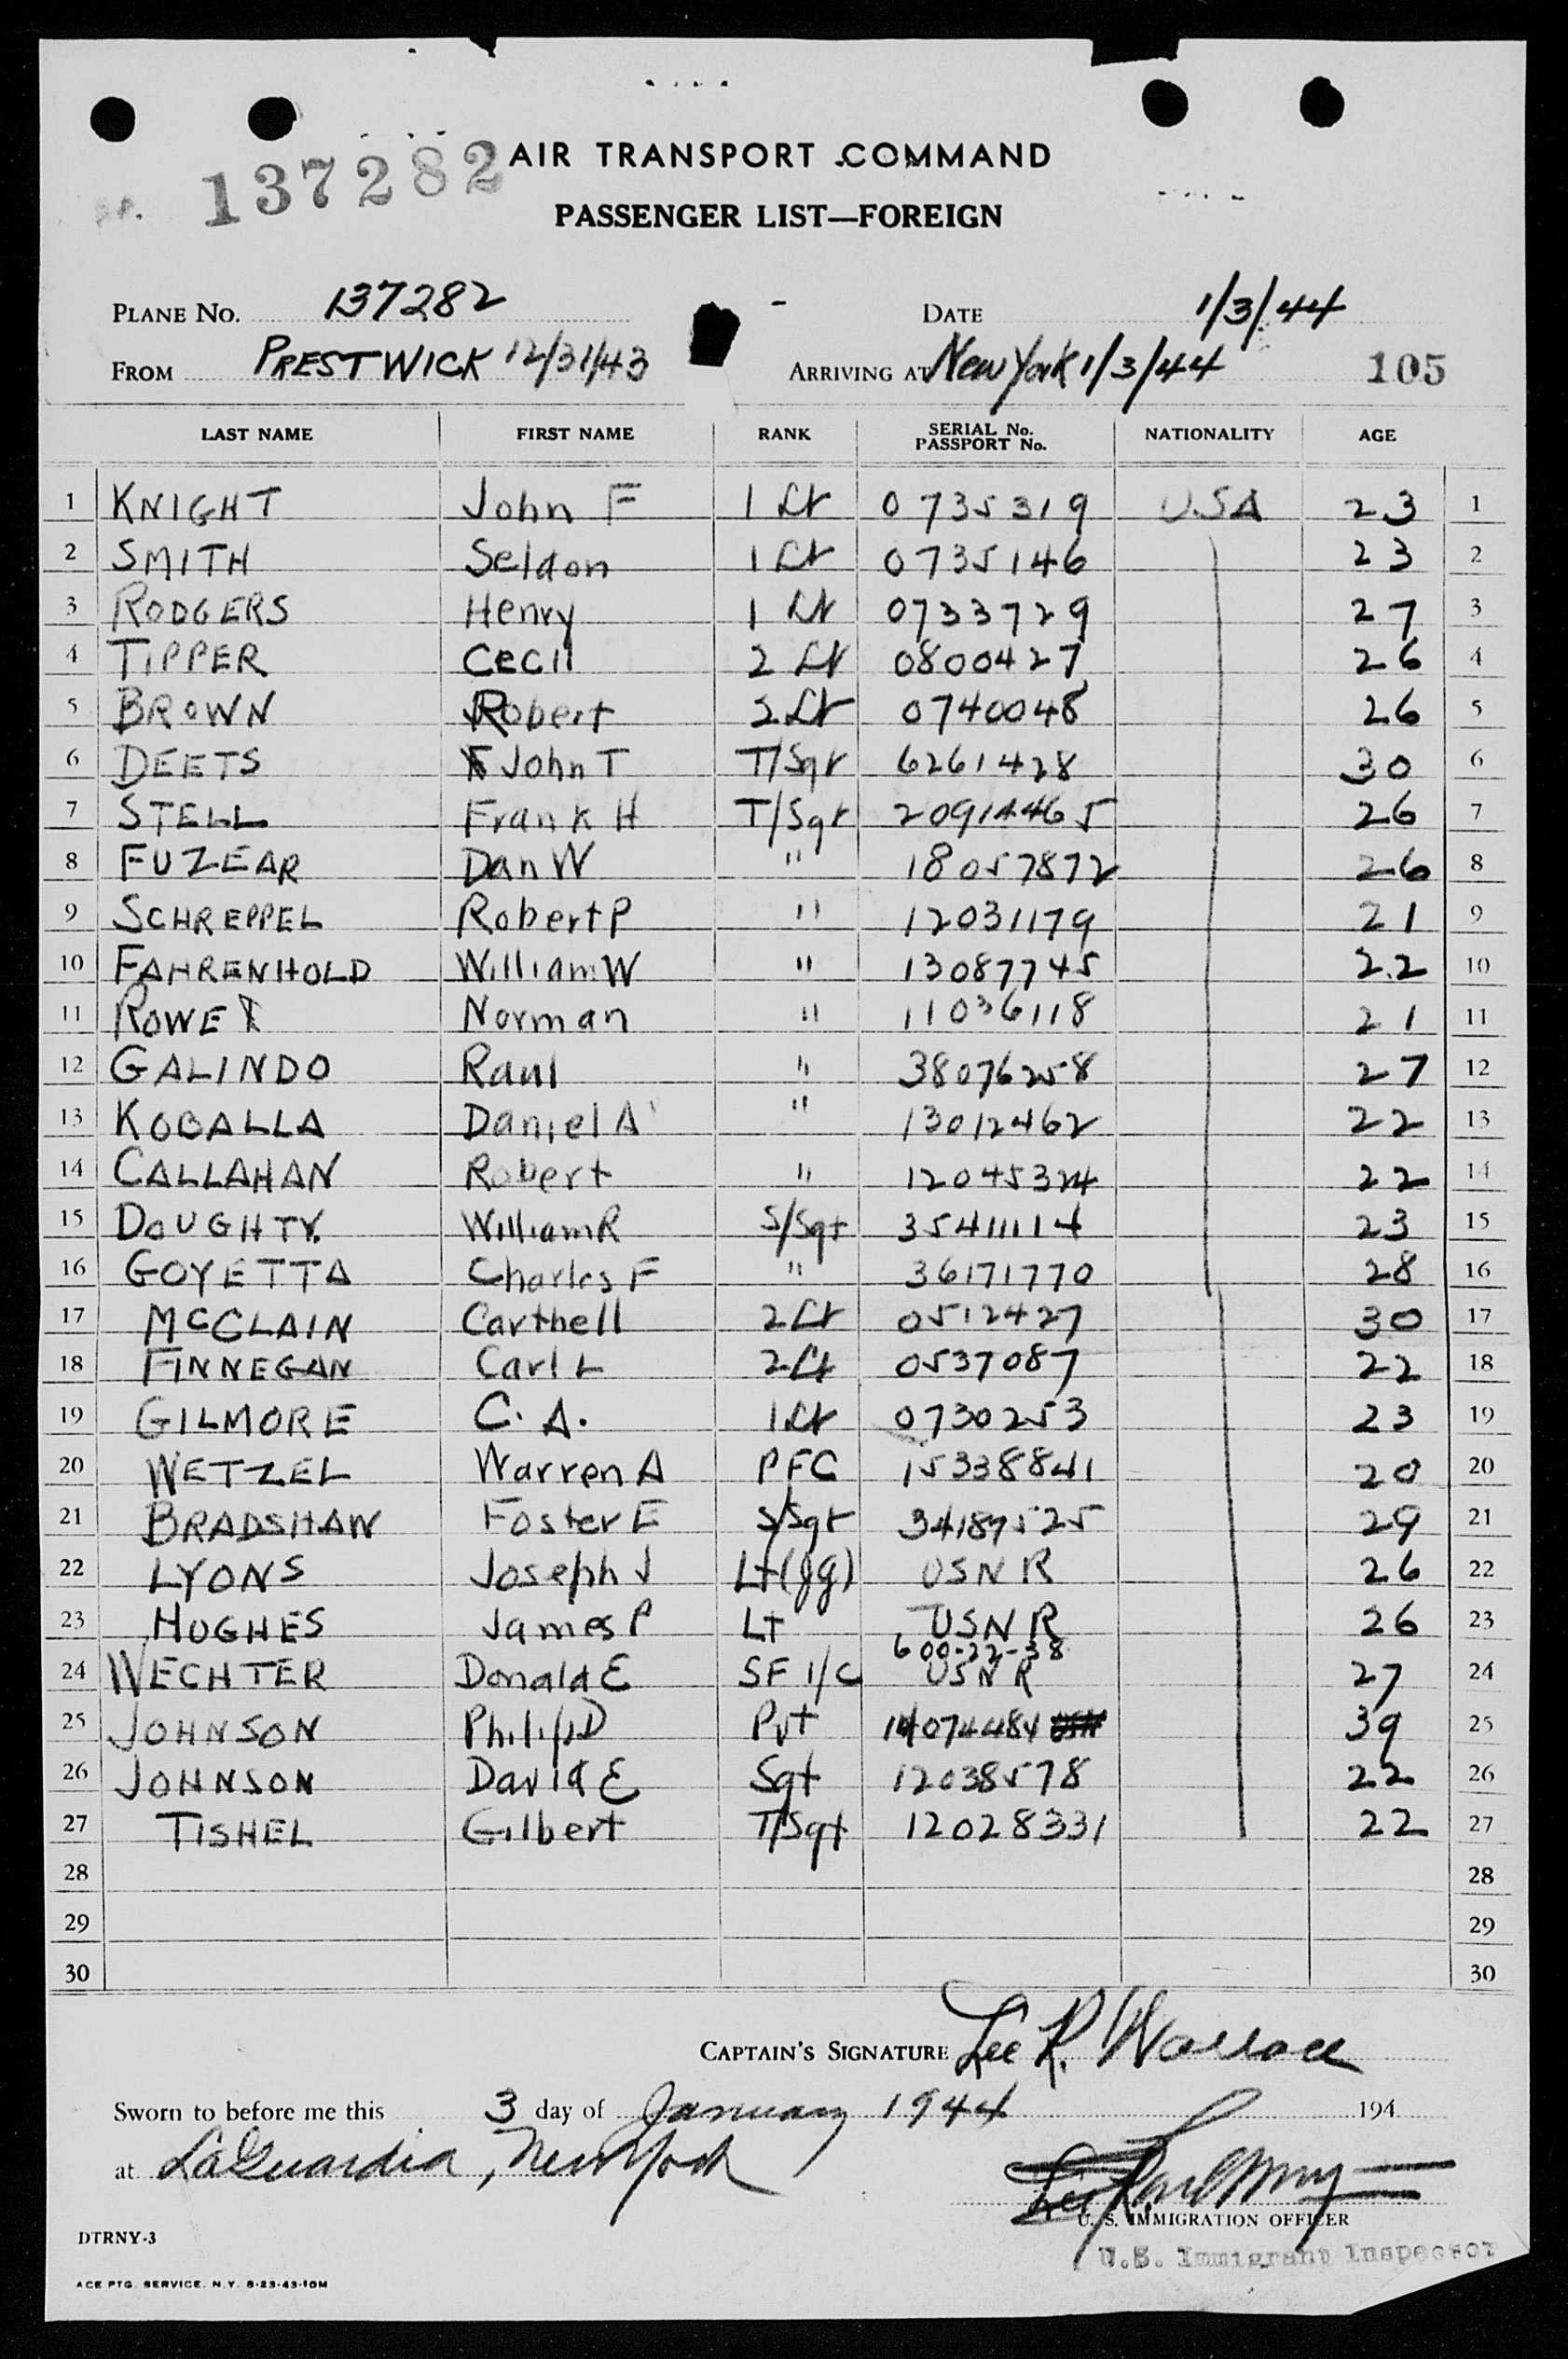 137282
AIR TRANSPORT COMMAND
PASSENGER LIST—FOREIGN
PLANE NO. 137282 DATE 1/3/44
FROM PRESTWICK 12/31/43 ARRIVING AT New York 1/3/44 105
LAST NAME FIRST NAME RANK SERIAL No. PASSPORT No. NATIONALITY AGE
1 KNIGHT John F 1 Lt 0735319 USA 23 1
2 SMITH Seldon 1 Lt 0735146 23 2
3 RODGERS Henry 1 Lt 0733729 27 3
4 TIPPER Cecil 2 Lt 0800427 26 4
5 BROWN Robert 2 Lt 0740048 26 5
6 DEETS John T T/Sgt 6261428 30 6
7 STELL Frank H T/Sgt 20914465 26 7
8 FUZEAR Dan W " 18057872 26 8
9 SCHREPPEL Robert P " 12031179 21 9
10 FAHRENHOLD William W " 13087745 22 10
11 ROWE Norman " 11036118 21 11
12 GALINDO Raul " 38076258 27 12
13 KOBALLA Daniel A " 13012462 22 13
14 CALLAHAN Robert " 12045324 22 14
15 DOUGHTY William R S/Sgt 35411114 23 15
16 GOYETTA Charles F " 36171770 28 16
17 McCLAIN Carthell 2 Lt 0512427 30 17
18 FINNEGAN Carl L 2 Lt 0537087 22 18
19 GILMORE C. A. 1 Lt 0730253 23 19
20 WETZEL Warren A PFC 15338841 20 20
21 BRADSHAW Foster E S/Sgt 34187525 29 21
22 LYONS Joseph J Lt (jg) USNR 26 22
23 HUGHES James P Lt USNR 26 23
600-22-38
24 WECHTER Donald E SF 1/C USNR 27 24
25 JOHNSON Philip D Pvt 14074484 39 25
26 JOHNSON David E Sgt 12038578 22 26
27 TISHEL Gilbert T/Sgt 12028331 22 27
28 28
29 29
30 30
CAPTAIN'S SIGNATURE Lee R. Wallace
Sworn to before me this 3 day of January 1944 194
at LaGuardia, New York
U. S. IMMIGRATION OFFICER
U.S. Immigrant Inspector
DTRNY-3
ACE PTG. SERVICE. N.Y. 8-23-43-10M